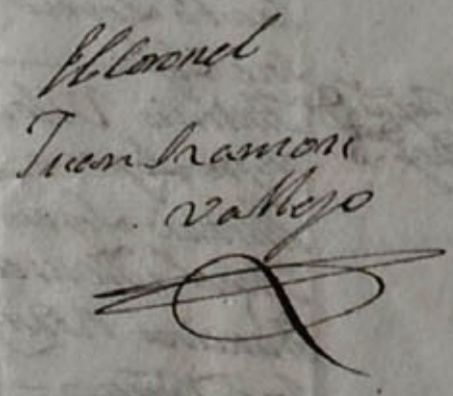 El Coronel
Juan Ramon
Vallejo